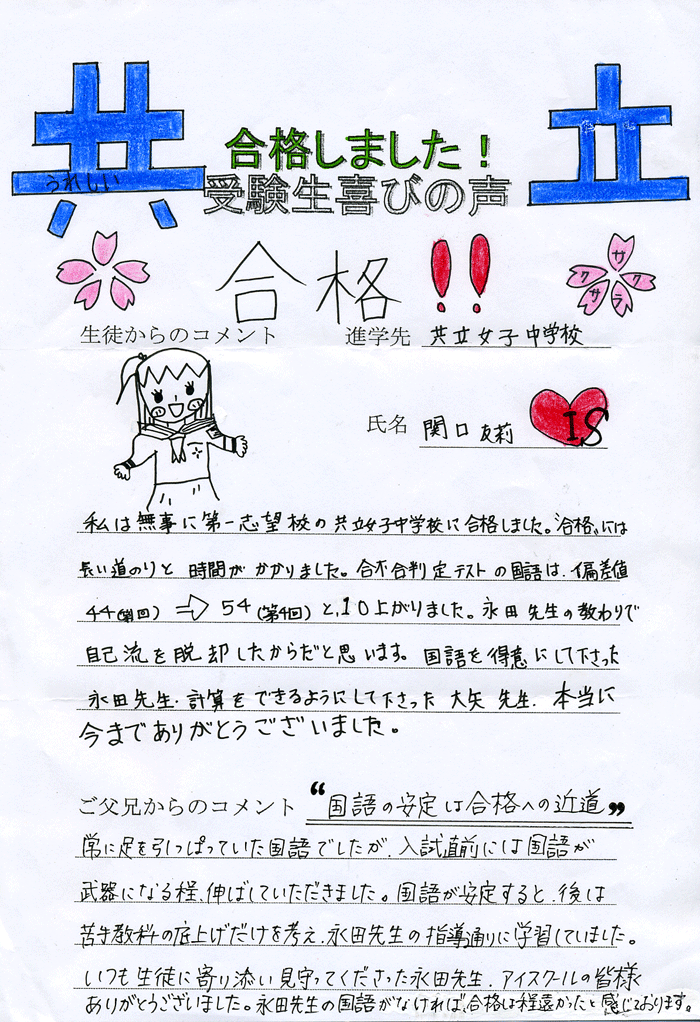 共 立
うれしい
合格しました！
受験生喜びの声
合格!!
サクラサク
生徒からのコメント 進学先 共立女子中学校
氏名 関口友莉
IS
私は無事に第一志望校の共立女子中学校に合格しました。〝合格〟には
長い道のりと 時間が かかりました。合不合判定テストの国語は、偏差値
44(第1回) ⇒ 54(第4回)と、10上がりました。永田先生の教わりで
自己流を脱却したからだと思います。国語を得意にして下さった
永田先生、計算をできるようにして下さった 大矢先生、本当に
今までありがとうございました。
ご父兄からのコメント “国語の安定は合格への近道”
常に足を引っぱっていた国語でしたが、入試直前には国語が
武器になる程、伸ばしていただきました。国語が安定すると、後は
苦手教科の底上げだけを考え、永田先生の指導通りに学習していました。
いつも生徒に寄り添い見守ってくださった永田先生、アイスクールの皆様
ありがとうございました。永田先生の国語がなければ、合格は程遠かったと感じております。